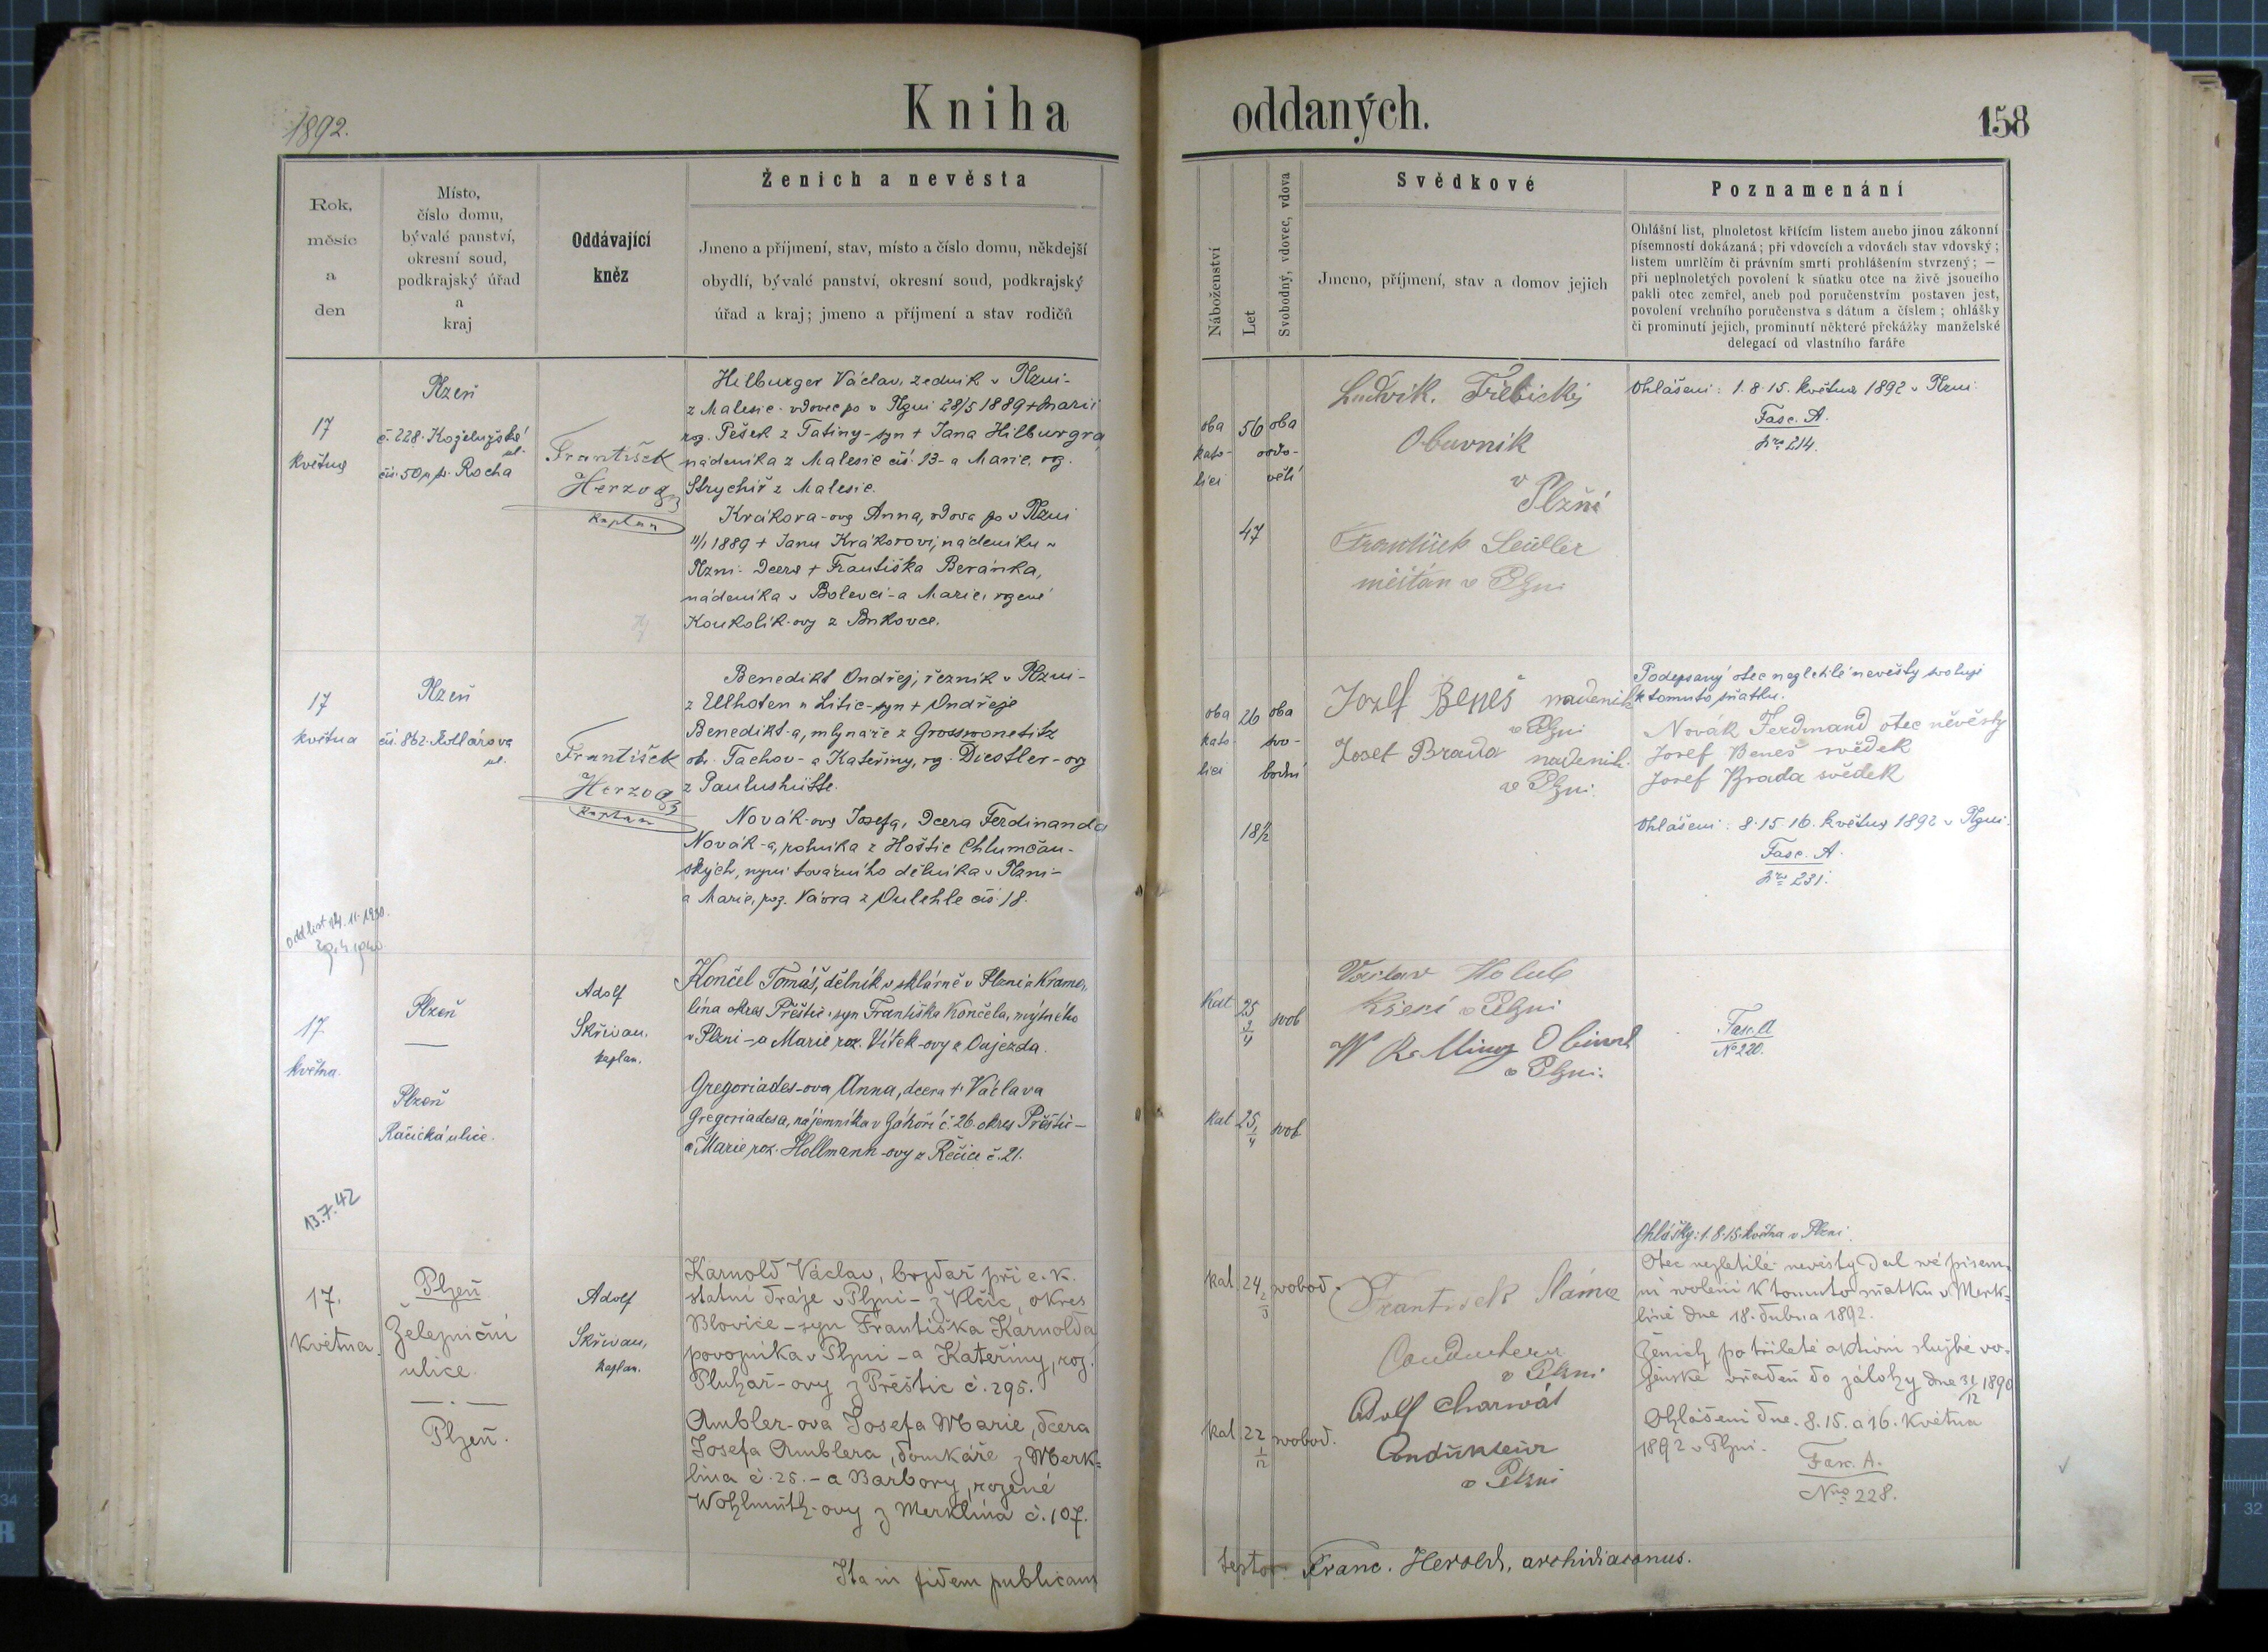 1892.
Kniha oddaných.
158
Rok,
měsíc
a
den
Místo,
číslo domu,
bývalé panství,
okresní soud,
podkrajský úřad
a
kraj
Oddávající
kněz
Ženich a nevěsta
Jmeno a příjmení, stav, místo a číslo domu, někdejší
obydlí, bývalé panství, okresní soud, podkrajský
úřad a kraj; jmeno a příjmení a stav rodičů
Náboženství
Let
Svobodný, vdovec, vdova
Svědkové
Jmeno, příjmení, stav a domov jejich
Poznamenání
Ohlášní list, plnoletost křticím listem anebo jinou zákonní
písemností dokázaná; při vdovcích a vdovách stav vdovský;
listem umrlčím či právním smrti prohlášením stvrzený; —
při neplnoletých povolení k sňatku otce na živě jsoucího
pakli otec zemřel, aneb pod poručenstvím postaven jest,
povolení vrchního poručenstva s dátum a číslem; ohlášky
či prominutí jejich, prominutí některé překážky manželské
delegací od vlastního faráře
17
května
Plzeň
č. 228. Koželužská ul.
čís. 50 p. sv. Rocha
František
Herzog
kaplan
Hilburger Václav, zedník v Plzni-
z Malesic. vdovec po v Plzni 28/5 1889 + Marii
roz. Pešek z Tatiny - syn + Jana Hilburgra,
nádeníka z Malesic čís. 13 - a Marie, rz.
Strychiř z Malesic.
Krákora-ova Anna, vdova po v Plzni
11/1 1889 + Janu Krákorovi, nádeníku v
Plzni - dcera + Františka Beránka,
nádeníka v Bolevci - a Marie, rozené
Koukolík-ovy z Bukovce.
oba
kato-
líci
56
47
oba
ovdo-
vělí
Ludvík. Třebický
Obuvník
v
Plzňi
František Seidler
měšťan v Plzni
Ohlášeni: 1. 8. 15. května 1892 v Plzni.
Fasc. A.
Nro 214.
17
května
Plzeň
čís. 862. Kollárova
ul.
František
Herzog
kaplan
Benedikt Ondřej, řezník v Plzni-
z Ellhoten u Litic - syn + Ondřeje
Benedikt-a, mlynáře z Grosswonetitz
okr. Tachov - a Kateřiny, rz. Diestler-ovy
z Paulushütte.
Novák-ova Josefa, dcera Ferdinanda
Novák-a, rolníka z Hoštic Chlumčan-
ských, nyní továrního dělníka v Plzni-
a Marie, roz. Vávra z Oulehle čís. 18.
oba
kato-
líci
26
18 1/2
oba
svo-
bodní
Jozef Beneš nadenik
v Plzni
Josef Brada nadenik
v Plzni.
Podepsaný otec nezletilé nevěsty svoluje
k tomuto sňatku.
Novák Ferdinand otec něvěsty
Josef Beneš svědek
Josef Brada svědek
Ohlášeni: 8. 15. 16. května 1892 v Plzni.
Fasc. A.
Nro 231.
17
května
Plzeň
Plzeň
Račická ulice.
Adolf
Skřivan,
kaplan.
Končel Tomáš, dělník v sklárně v Plzni z Kramo-
lína okres Přeštic, syn Františka Končela, mýtného
v Plzni - a Marie roz. Vítek-ovy z Oujezda.
Gregoriades-ova Anna, dcera + Václava
Gregoriadesa, nájemníka v Záhoří č. 26. okres Přeštic -
a Marie roz. Hollmann-ovy z Řečice č. 21.
Kat
25
svob
Kat
25
svob
Vaclav Holub
v Plzni
v Plzni.
Fasc. A
No 220.
Ohlášky: 1. 8. 15. května v Plzni.
13.7.42
17.
května.
Plzeň
Železniční
ulice.
Plzeň.
Adolf
Skřivan,
kaplan.
Karnold Václav, brzdař při c. k.
státní dráze v Plzni - z Vlčic, okres
Blovice - syn Františka Karnolda
povozníka v Plzni - a Kateřiny, roz.
Pluhař-ovy z Přeštic č. 295.
Ambler-ova Josefa Marie, dcera
Josefa Amblera, domkáře z Merk=
lína č. 25. - a Barbory, rozené
Wohlmuth-ovy z Merklína č. 107.
kat
24 2/3
svobod.
kat
22 1/12
svobod.
František Sláma
Conducteur
v Plzni
Adolf Charvát
Condukteur
v Plzni
Otec nezletilé nevěsty dal své písem=
ní svolení k tomuto sňatku v Merk=
líně dne 18. dubna 1892.
Ženich po tříleté aktivní službě vo=
jenské vřaděn do zálohy dne 31/12 1890
Ohlášeni dne. 8. 15. a 16. května
1892 v Plzni.
Fasc. A.
Nro 228.
Ita in fidem publicam
testor Franc. Herold, archidiaconus.